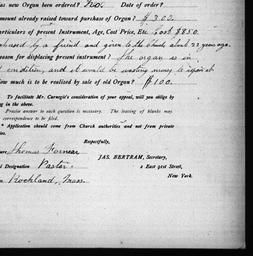 new Organ been ordered? No.
amount already raised toward purchase of Organ? $300.
particulars of present Instrument, Age, Cost Price, Etc. Cost $850.
by a friend and given to the Church about 23 years ago.
reason for displacing present instrument? The organ is in
condition, and it would be wasting money to repair it
How much is to be realized by sale of old Organ? $100.
To facilitate Mr. Carnegie's consideration of your appeal, will you oblige by
ing in the above.
Precise answer to each question is necessary. The leaving of blanks may
correspondence to be filed.
* Application should come from Church authorities and not from private
ies.
Respectfully,
JAS. BERTRAM, Secretary,
Thomas
Designation Pastor
2 East 91st Street,
New York.
Rockland, Mass.